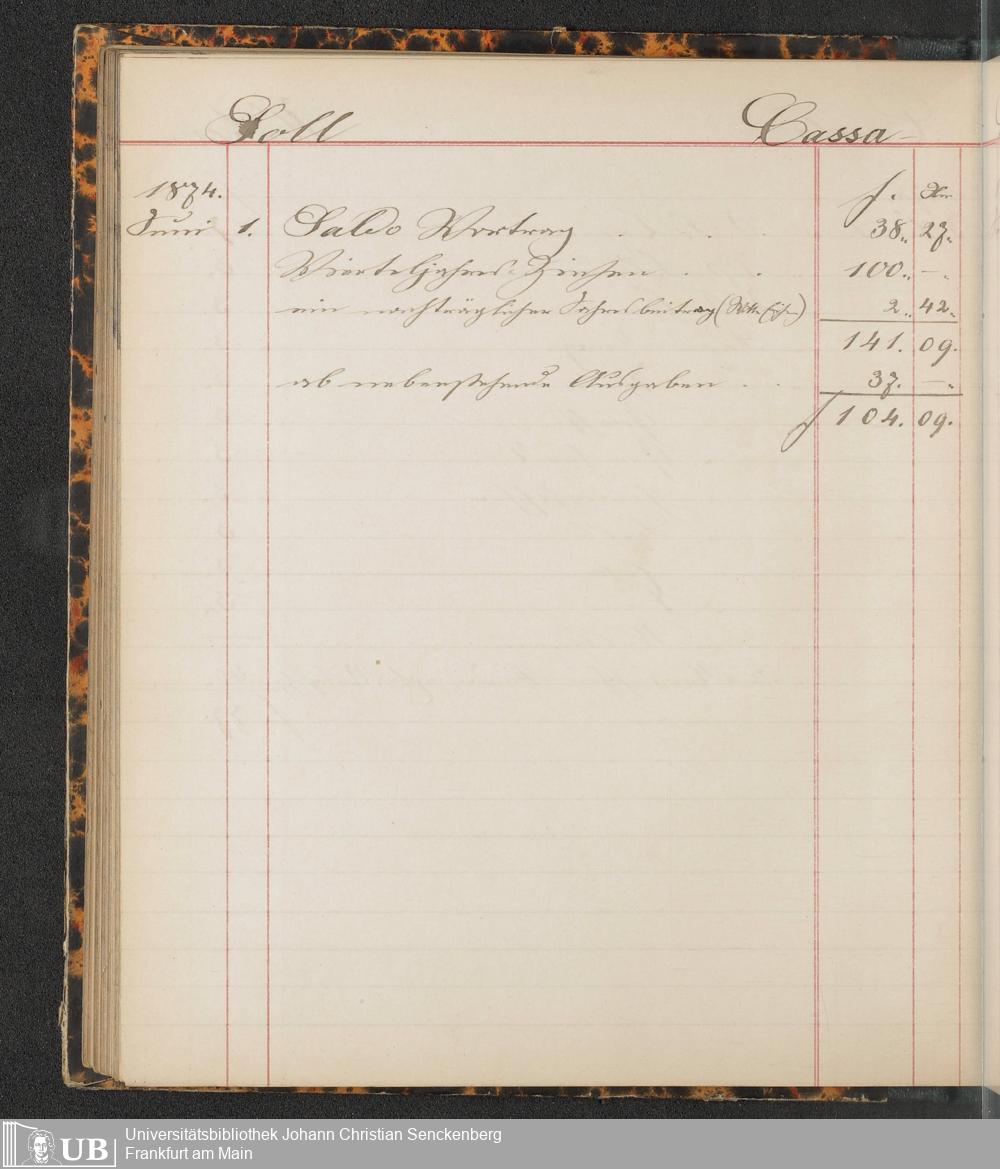 Soll Cassa
1874. f. Xr.
Juni 1. Saldo Vortrag . . . 38.. 27.
Vierteljahres-Zinsen . . 100.. — .
ein nachträglicher Jahresbeitrag ( ) 2.. 42.
141. 09.
ab nebenstehende Ausgaben . . 37. — .
f 104. 09.
UB
Universitätsbibliothek Johann Christian Senckenberg
Frankfurt am Main